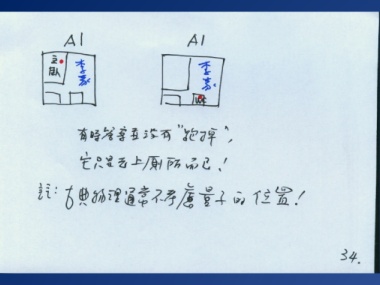 A1 A1
主臥 李家 李家
有時 並沒有"跑掉",
它只是去上厠所而已!
註:古典物理通常不考慮量子的位置!
34.